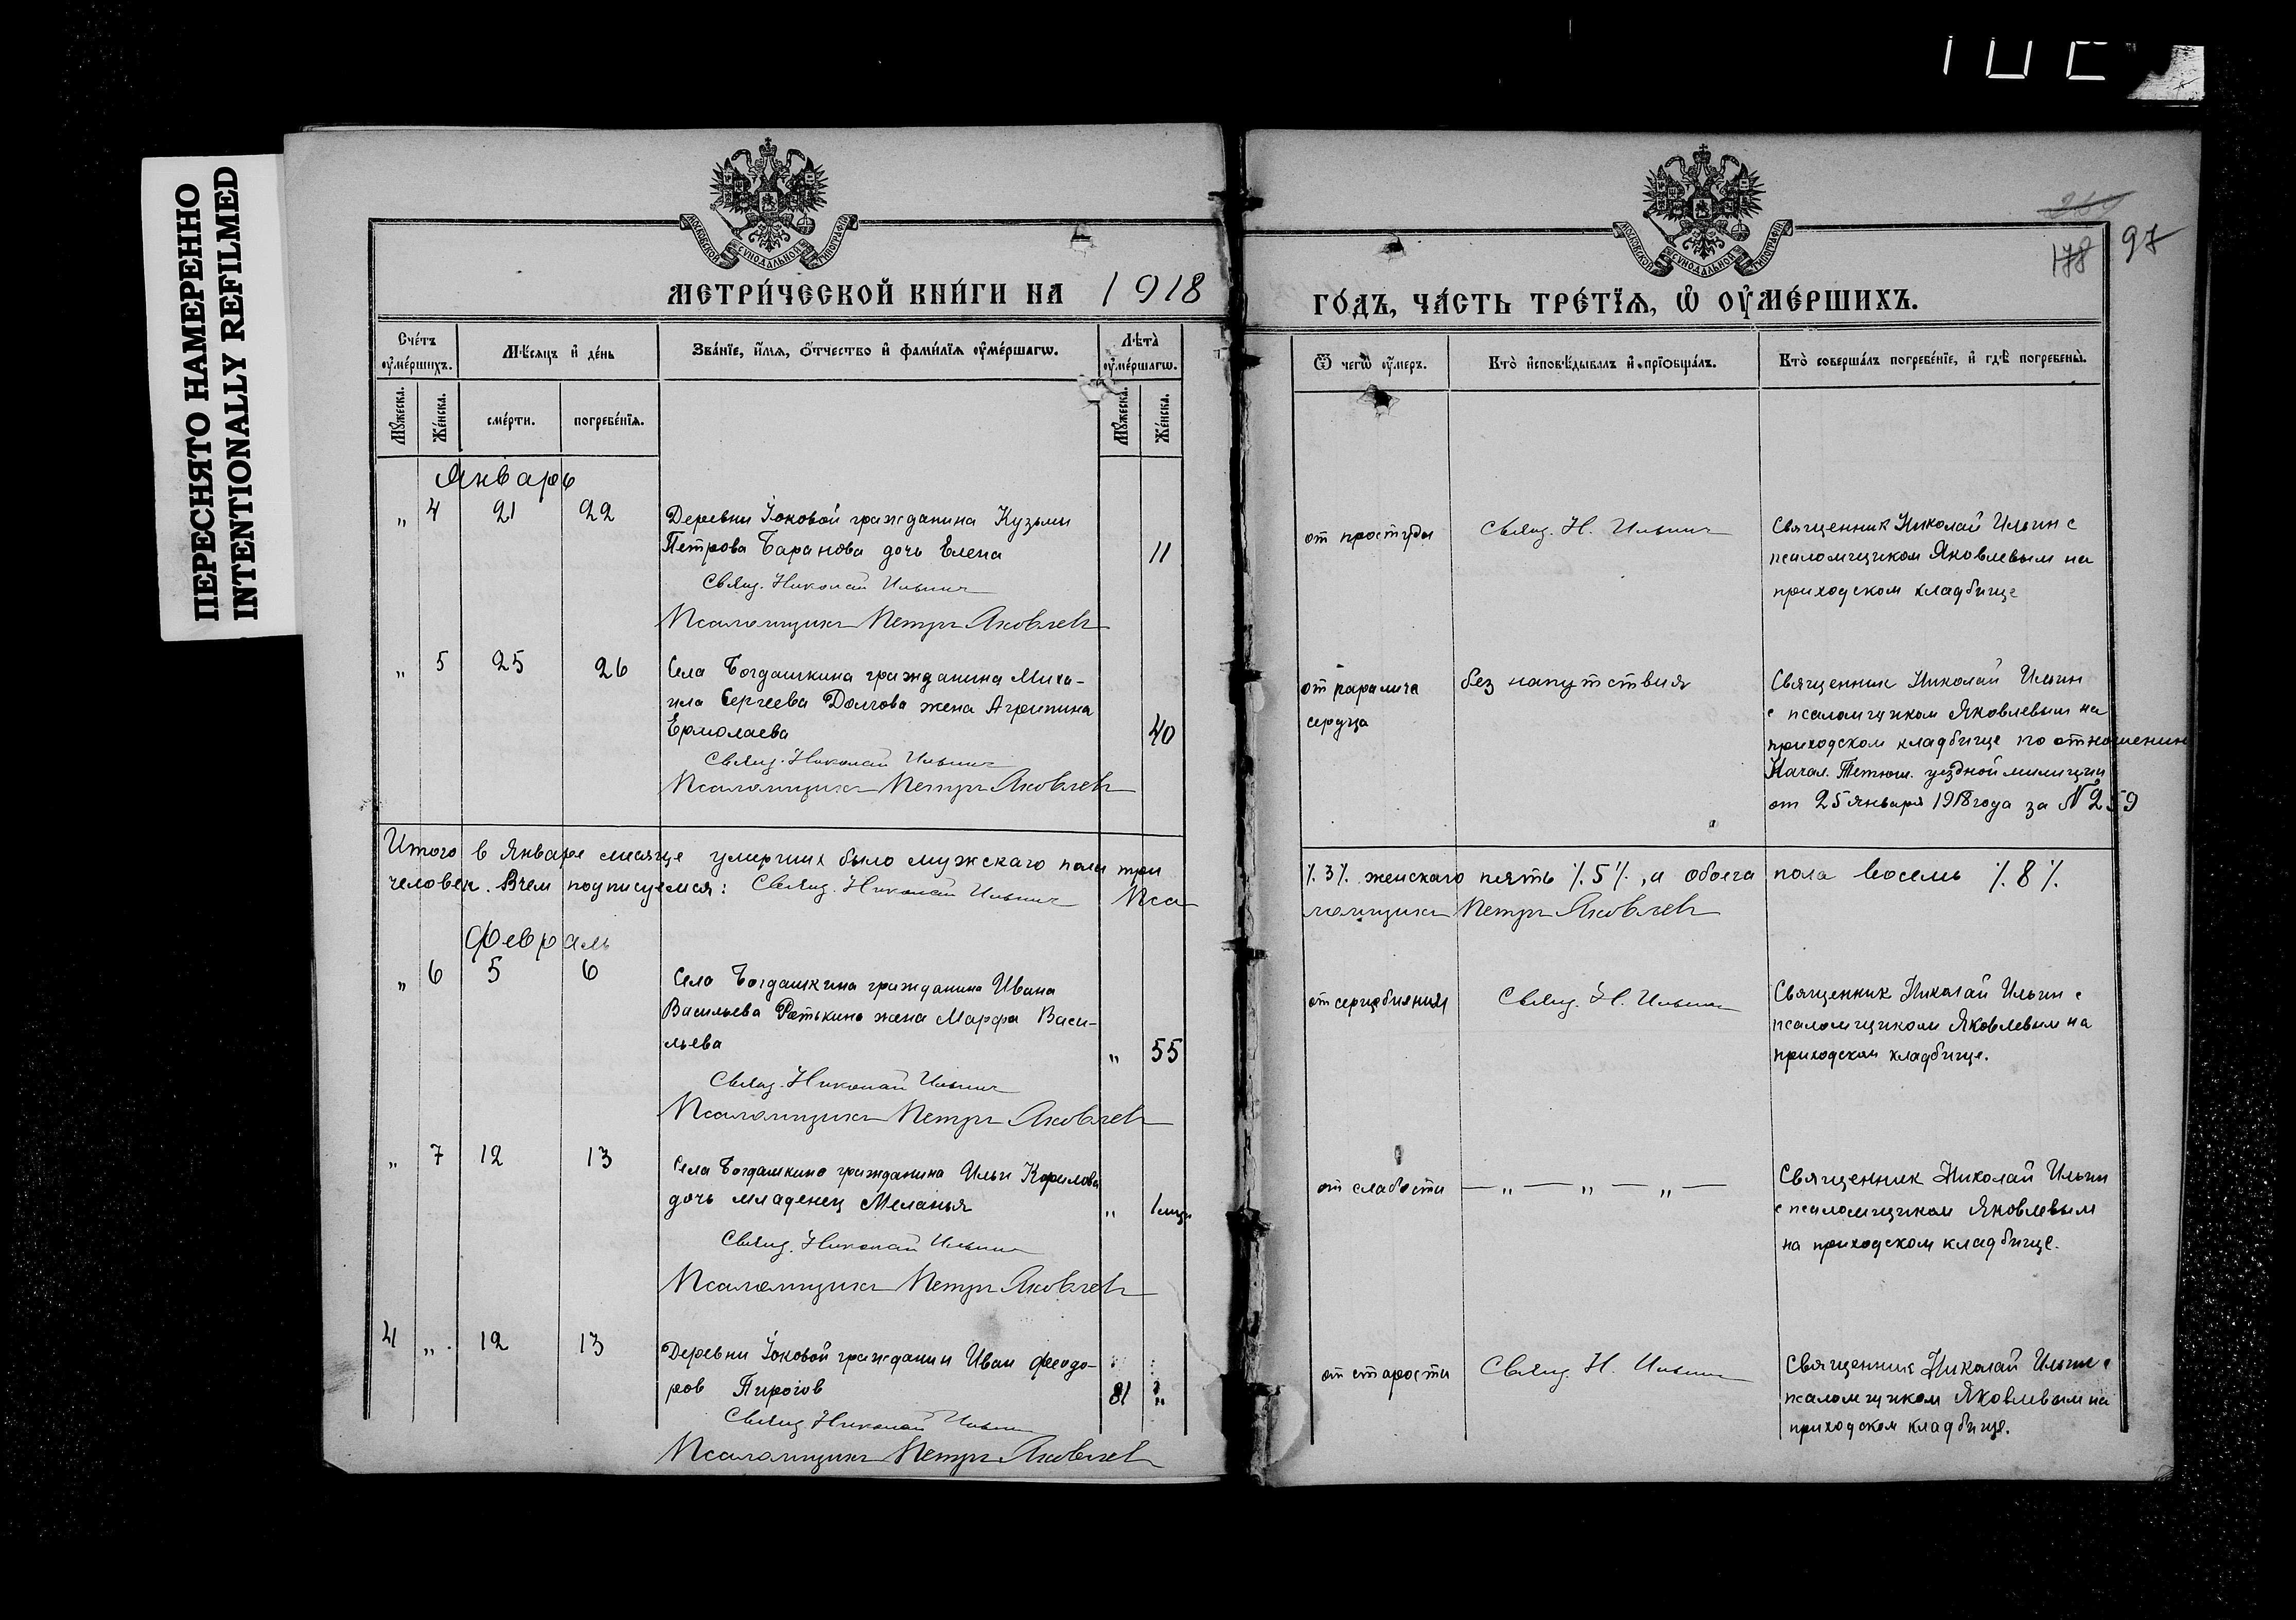 ПЕРЕСНЯТО НАМЕРЕННО
INTENTIONALLY REFILMED
260
178
97
МОСКОВСКОЙ СѴНОДАЛЬНОЙ ТИПОГРАФІИ
МОСКОВСКОЙ СѴНОДАЛЬНОЙ ТИПОГРАФІИ
МЕТРИ́ЧЕСКОЙ КНИ́ГИ НА 1918
ГО́ДЪ, ЧА́СТЬ ТРЕ́ТІѦ, Ѡ҆ ОУ҆МЕ́РШИХЪ.
Сче́тъ оу҆ме́ршихъ.
Мѣ́сяцъ и҆ де́нь
Зва́нїе, и҆́мѧ, ѻ҆́тчество и҆ фами́лїѧ оу҆ме́ршагѡ.
Лѣ́та̀ оу҆ме́ршагѡ.
Ѿ чегѡ̀ оу҆́меръ.
Кто̀ и҆сповѣ́дывалъ и҆ прїѡбща́лъ.
Кто̀ соверша́лъ погребе́нїе, и҆ гдѣ̀ погребены̀.
Мꙋ́жеска.
Же́нска.
сме́рти.
погребе́нїѧ.
Мꙋ́жеска.
Же́нска.
Январь
„ 4 21 22 Деревни Іоковой гражданина Кузьмы
Петрова Баранова дочь Елена 11
Свящ. Николай Ильин
Псаломщикъ Петръ Яковлев
от простуды
Свящ. Н. Ильин
Священник Николай Ильин с
псаломщиком Яковлевым на
приходском кладбище
„ 5 25 26 Села Богдашкина гражданина Миха-
ила Сергеева Долгова жена Агрипина
Ермолаева 40
Свящ. Николай Ильин
Псаломщикъ Петръ Яковлев
от паралича
сердца
без напутствия
Священник Николай Ильин
с псаломщиком Яковлевым на
приходском кладбище по отношению
Начал. Тетюш. уездной милиции
от 25 января 1918 года за № 259
Итого в Январе месяце умерших было мужскаго пола три
человек. В чем подписуемся: Свящ. Николай Ильин Пса
٪ 3 ٪ женскаго пять ٪ 5 ٪, а обоего пола восемь ٪ 8 ٪
ломщикъ Петръ Яковлев
Февраль
„ 6 5 6 Села Богдашкина гражданина Ивана
Васильева Ретькина жена Марфа Васи-
льева „ 55
Свящ. Николай Ильин
Псаломщикъ Петръ Яковлев
от серцебиения
Свящ. Н. Ильин
Священник Николай Ильин с
псаломщиком Яковлевым на
приходском кладбище.
„ 7 12 13 Села Богдашкина гражданина Ильи
дочь младенец Меланья „
Свящ. Николай Ильин
Псаломщикъ Петръ Яковлев
от слабости
— „ — „ — „ —
Священник Николай Ильин
с псаломщиком Яковлевым
на приходском кладбище.
4 „ 12 13 Деревни Іоковой гражданин Иван Феодо-
ров Пирогов 81 „
Свящ. Николай Ильин
Псаломщикъ Петръ Яковлев
от старости
Свящ. Н. Ильин
Священник Николай Ильин с
псаломщиком Яковлевым на
приходском кладбище.